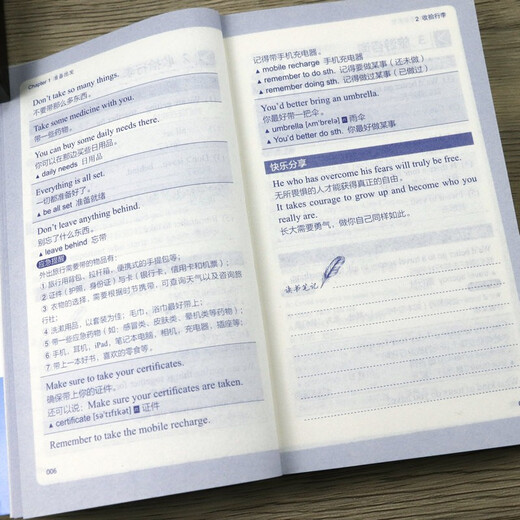 Chapter 1 准备出发
Don't take so many things.
不要带那么多东西。
Take some medicine with you.
带一些药物。
You can buy some daily needs there.
你可以在那边买些日用品。
▲ daily needs 日用品
Everything is all set.
一切都准备好了。
▲ be all set 准备就绪
Don't leave anything behind.
别忘了什么东西。
▲ leave behind 忘带
应急提醒
外出旅行需要带的物品有：
1 旅行用背包、拉杆箱、便携式的手提包等；
2 证件（护照、身份证）与卡（银行卡、信用卡和机票）；
3 衣物的选择，需要根据时节携带，可查询天气以及咨询旅
行社；
4 洗漱用品，以套装为佳：毛巾，浴巾最好带上；
5 带一些应急药物（如：感冒类、皮肤类、晕机类等药物）；
6 手机、耳机、iPad、笔记本电脑、相机、充电器、插座等；
7 带上一本好书、喜欢的零食等。
Make sure to take your certificates.
确保带上你的证件。
还可以说：Make sure your certificates are taken.
▲ certificate [səˈtɪfɪkət] n 证件
Remember to take the mobile recharge.
006
2 收拾行李
记得带手机充电器。
▲ mobile recharge 手机充电器
▲ remember to do sth. 记得要做某事（还未做）
▲ remember doing sth. 记得做过某事（已做过）
You'd better bring an umbrella.
你最好带一把伞。
▲ umbrella [ʌmˈbrelə] n 雨伞
▲ You'd better do sth. 你最好做某事
快乐分享
He who has overcome his fears will truly be free.
无所畏惧的人才能获得真正的自由。
It takes courage to grow up and become who you
really are.
长大需要勇气，做你自己同样如此。
读书笔记